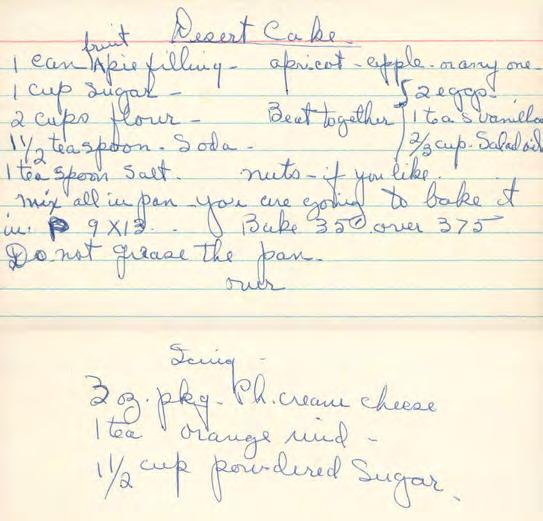 Desert Cake
1 can fruit pie filling - apricot - apple - or any one -
1 cup Sugar - 2 eggs -
2 cups flour - Beat together { 1 teas vanilla
1 1/2 teaspoon - Soda - 2/3 cup - Salad oil
1 teaspoon Salt. nuts - if you like.
mix all in pan - you are going to bake it
in. 9 X 13. Bake 350 over 375
Do not grease the pan.
over
Icing -
3 oz. pkg - Ph. cream cheese
1 tea orange rind -
1 1/2 cup powdered Sugar.